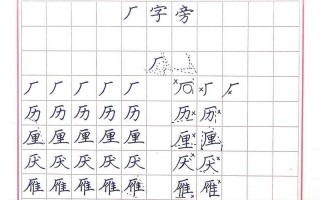 厂字旁
厂
厂厂厂厂厂厂厂厂
历历历历历历历
厘厘厘厘厘厘厘
厌厌厌厌厌厌厌
雁雁雁雁雁雁雁